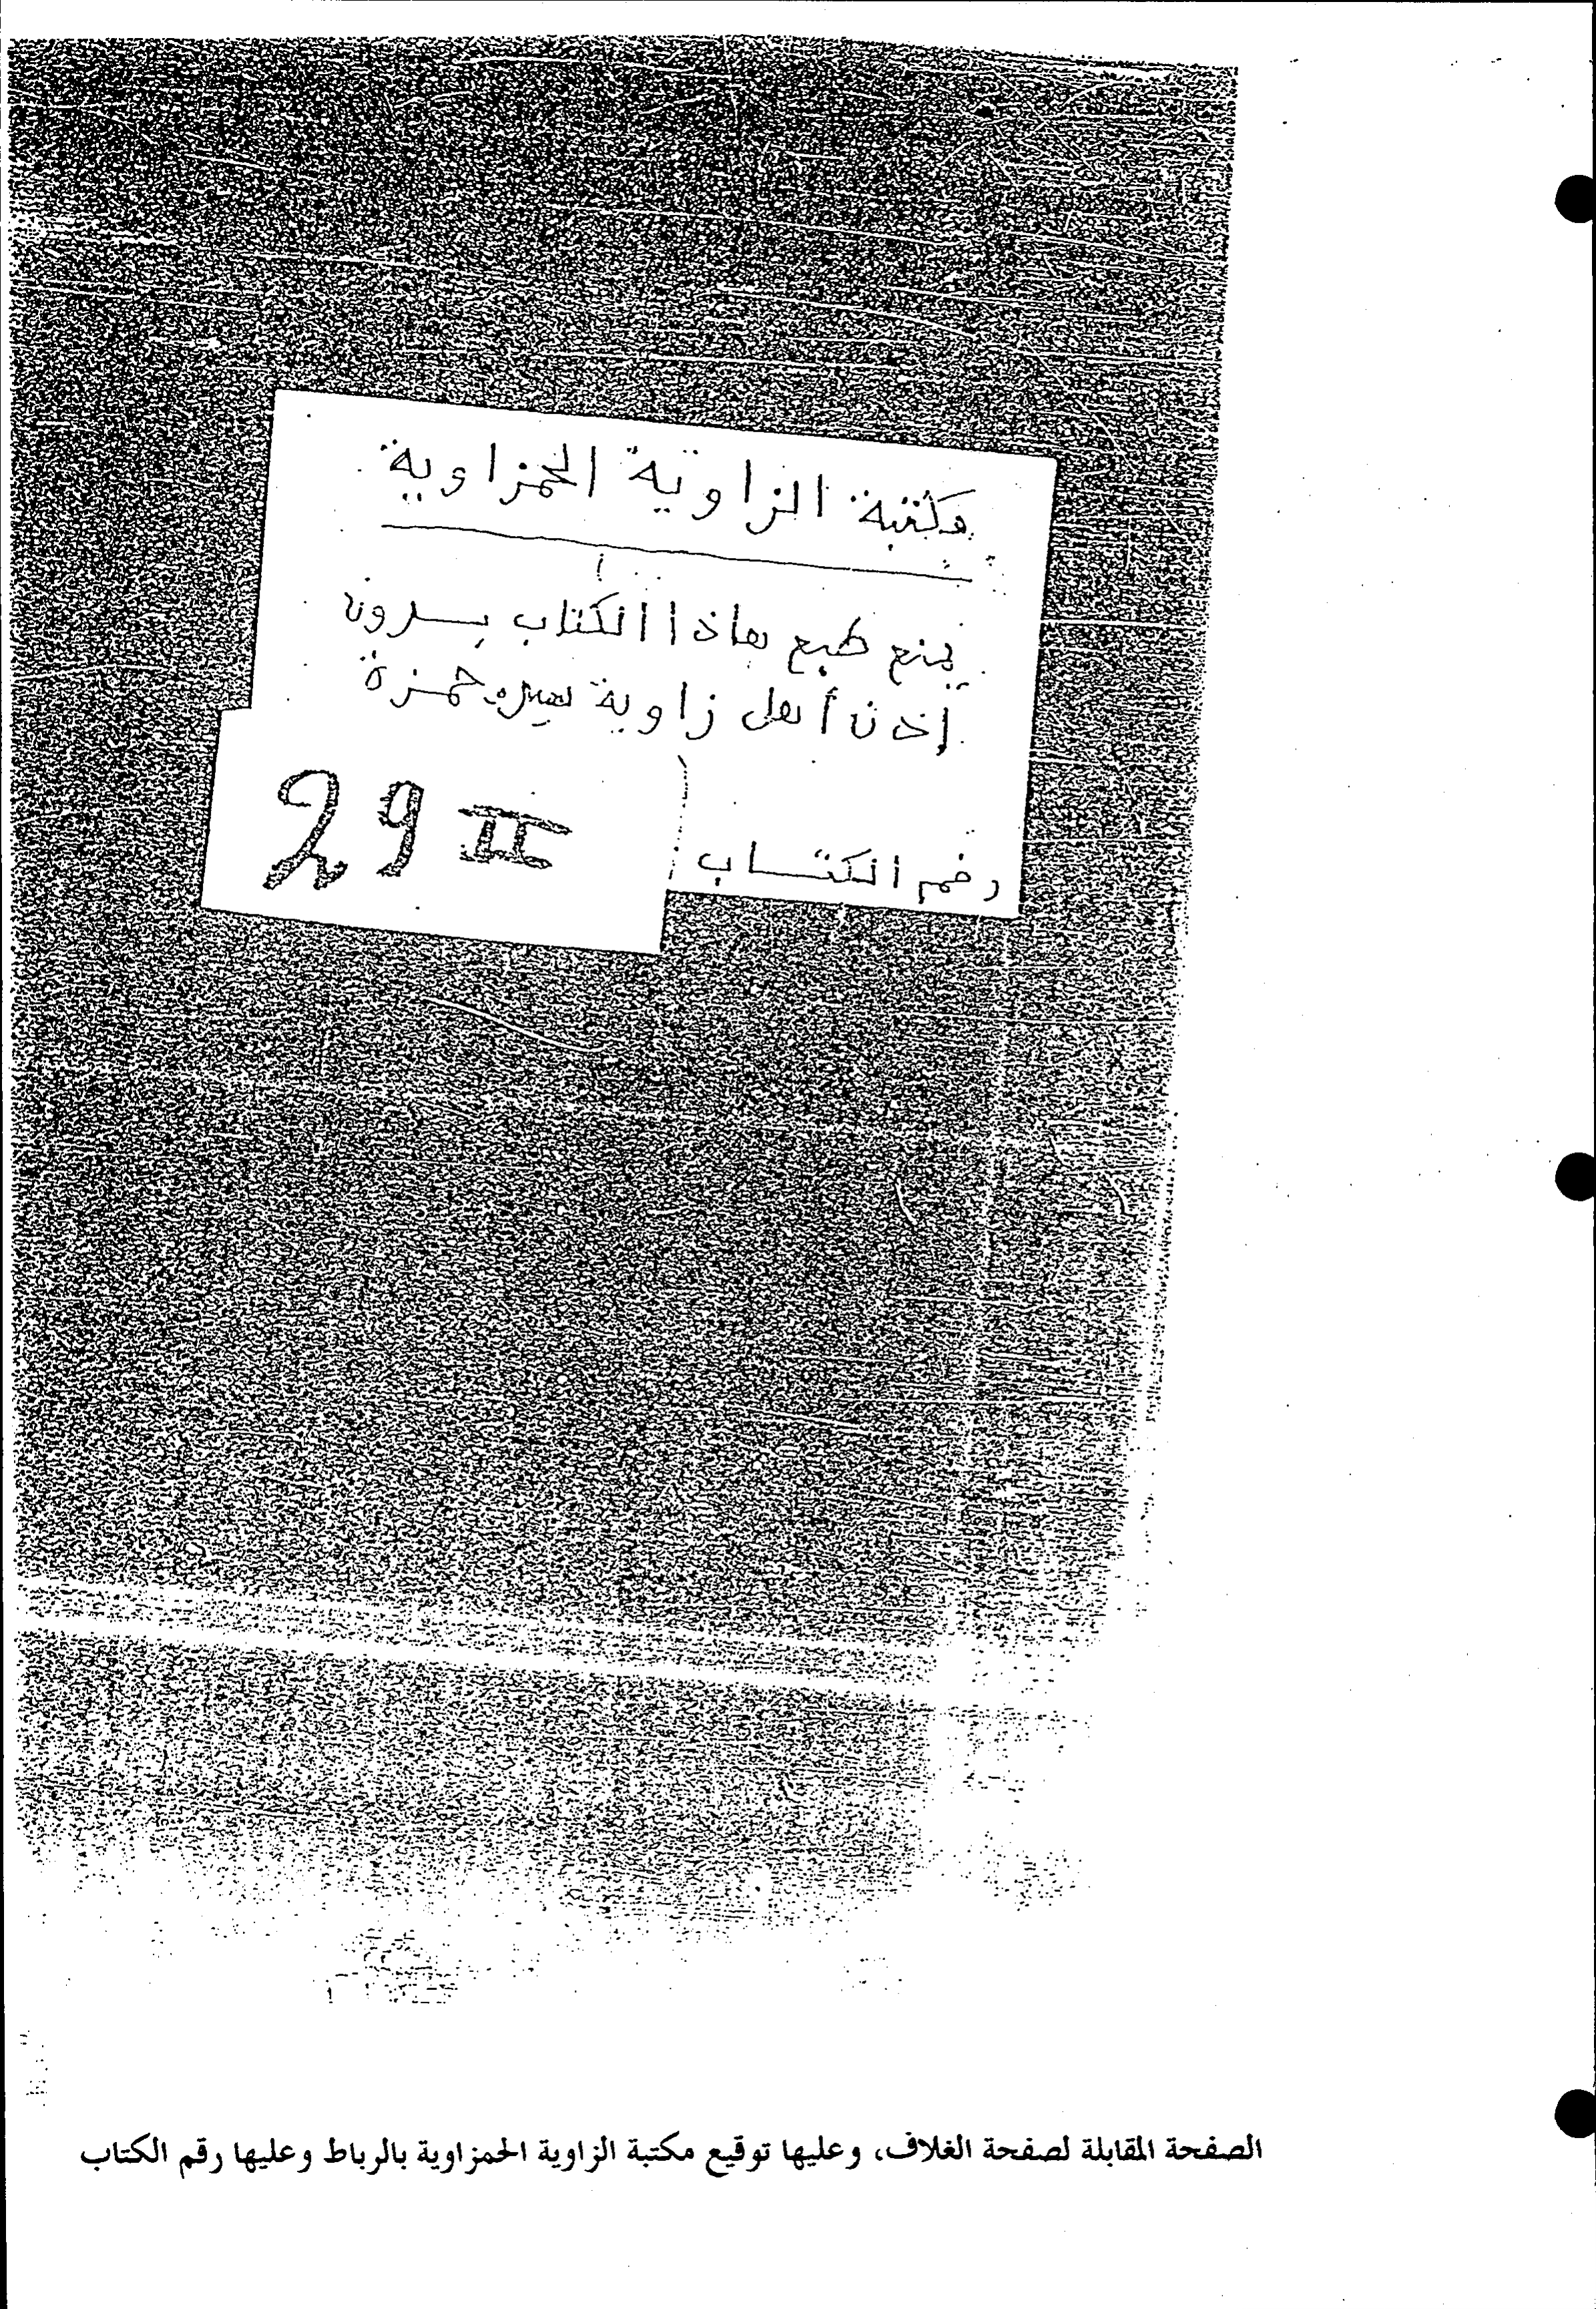 مكتبة الزاوية الحمزاوية
يمنع طبع هاذا الكتاب بدون
إذن أهل زاوية سيدي حمزة
رقم الكتاب
29 II
الصفحة المقابلة لصفحة الغلاف، وعليها توقيع مكتبة الزاوية الحمزاوية بالرباط وعليها رقم الكتاب